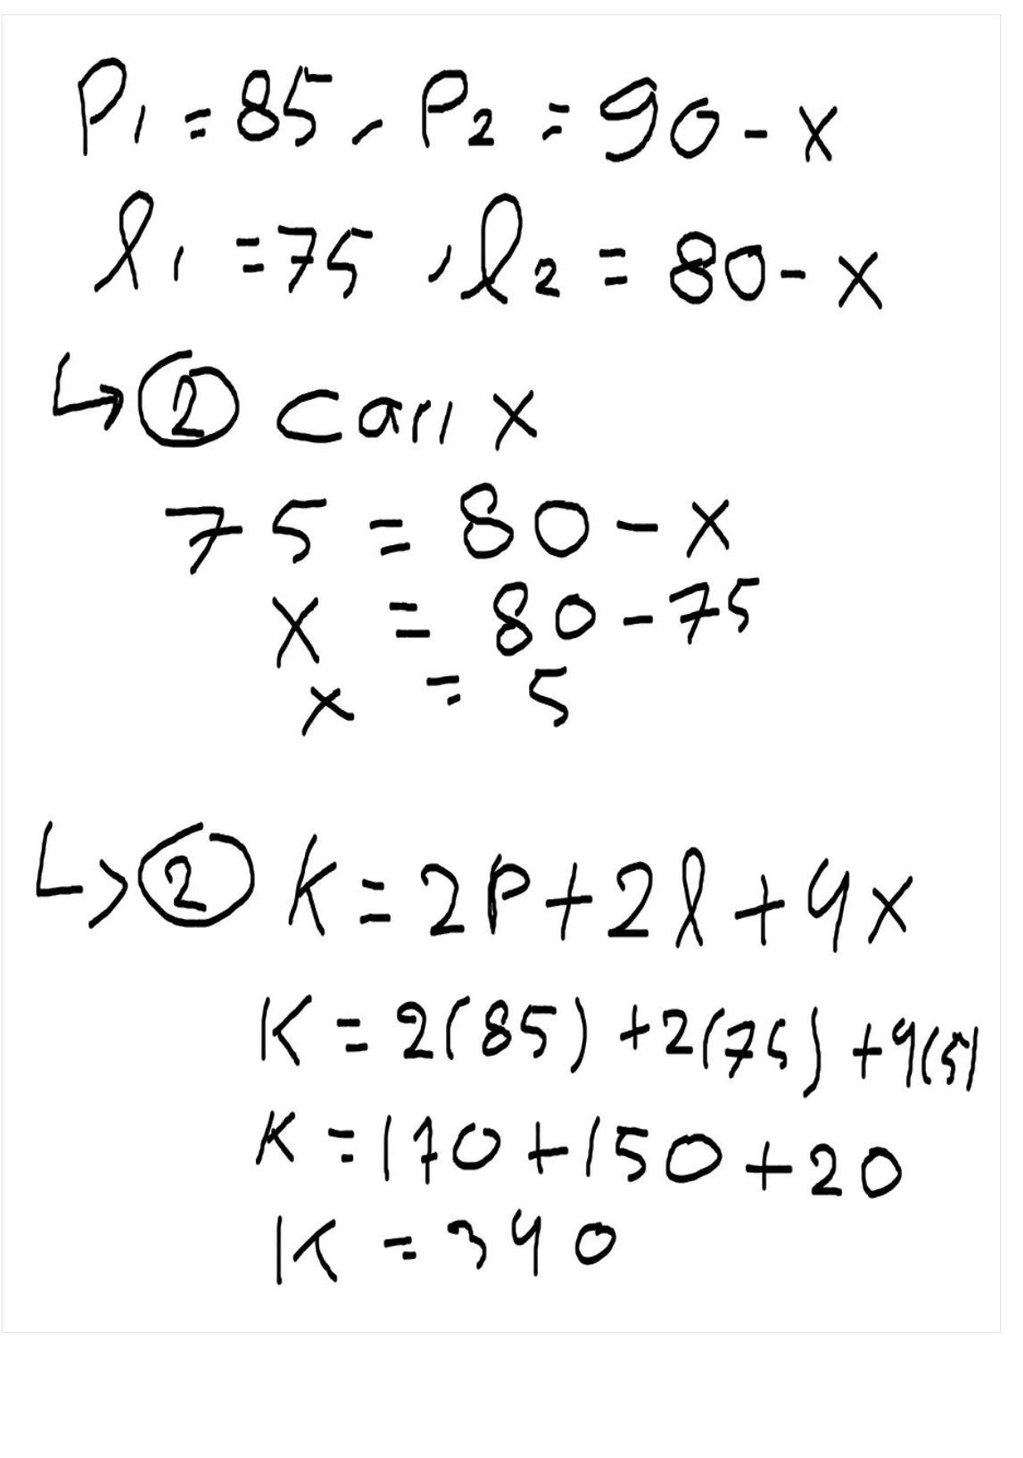 P₁ = 85, P₂ = 90 - x
l₁ = 75, l₂ = 80 - x
↳ ② Cari x
75 = 80 - x
x = 80 - 75
x = 5
↳ ② K = 2P + 2l + 4x
K = 2(85) + 2(75) + 4(5)
K = 170 + 150 + 20
K = 340